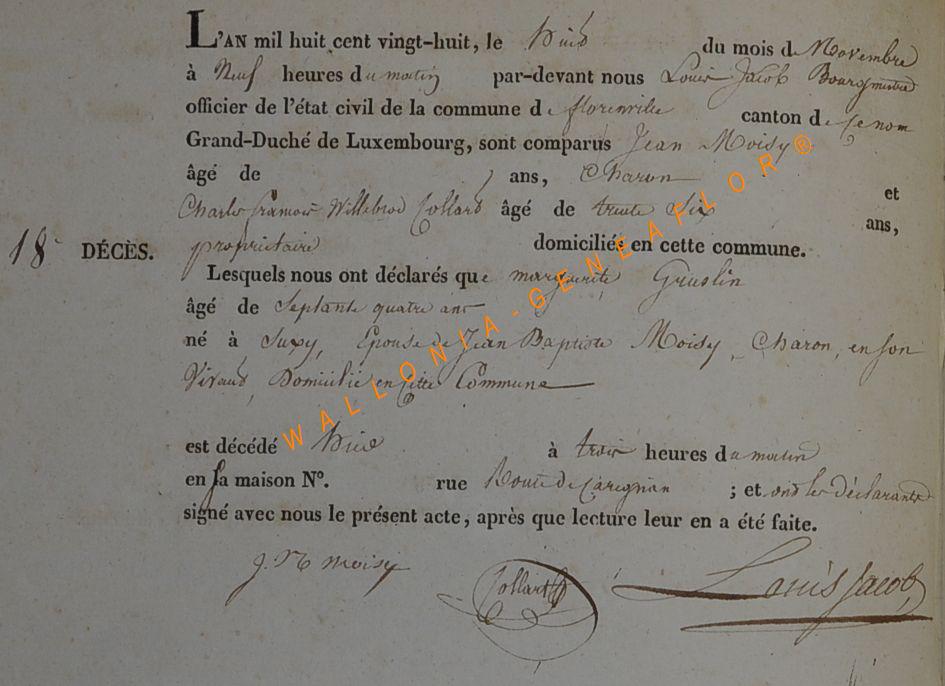 L'AN mil huit cent vingt-huit, le huit du mois de Novembre
à Neuf heures du matin par-devant nous Louis Jacob Bourgmestre
officier de l'état civil de la commune de florenville canton de
Grand-Duché de Luxembourg, sont comparus Jean Moisy
âgé de ans, Charon et
Charles francois Willebrod Collard âgé de trente Six ans,
18e DÉCÈS. propriétaire domiciliés en cette commune.
Lesquels nous ont déclarés que marguerite
âgé de Septante quatre ans
né à Suxy, Epouse de Jean Baptiste Moisy, Charon, en son
Vivant, Domicilié en Cette Commune
est décédé à trois heures du matin
en sa maison N°. rue Route de Carignan ; et ont les déclarants
signé avec nous le présent acte, après que lecture leur en a été faite.
moisy Collard Louis Jacob
WALLONIA-GENEAFLOR®